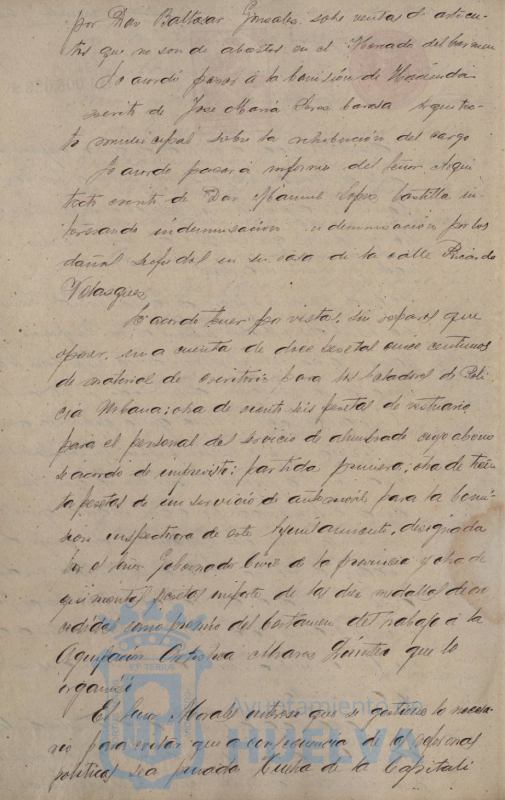 por Don Baltasar Gonzales, sobre ventas de articu-
los que no son de abastos en el Mercado del Carmen
Se acordó pasar á la Comisión de Hacienda
escrito de Jose Maria Peres Carasa Arquitec-
to municipal sobre la retribución del cargo
Se acordó pasar á informe del Señor Arqui
tecto escrito de Don Manuel Lopes Castilla in-
teresando indemnisacion indemnisación por los
daños sufridos en su casa de la calle Ricardo
Velasques
Se acordó tener por vistas, sin reparos que
oponer, una cuenta de doce pesetas once centimos
de material de escritorio para los Celadores de Poli
cia Urbana; otra de veinte seis pesetas de vestuario
para el personal del servicio de alumbrado cuyo abono
se acordó de imprevistos; partida primera; otra de trein
ta pesetas de un servicio de automovil para la Comi
sion inspectora de este Ayuntamiento, designada
por el Señor Gobernador Civil de la provincia y otra de
quinientas pesetas importe de las dies medallas
como premio del Certamen del Trabajo á la
Agrupación Artistica Alvares Quintero que lo
organisó
El Señor Morales intereso que se gestione lo necesa-
rio para evitar que a consecuencia de las
politicos sea privada Huelva de la Capitali
Ayuntamiento de
HUELVA